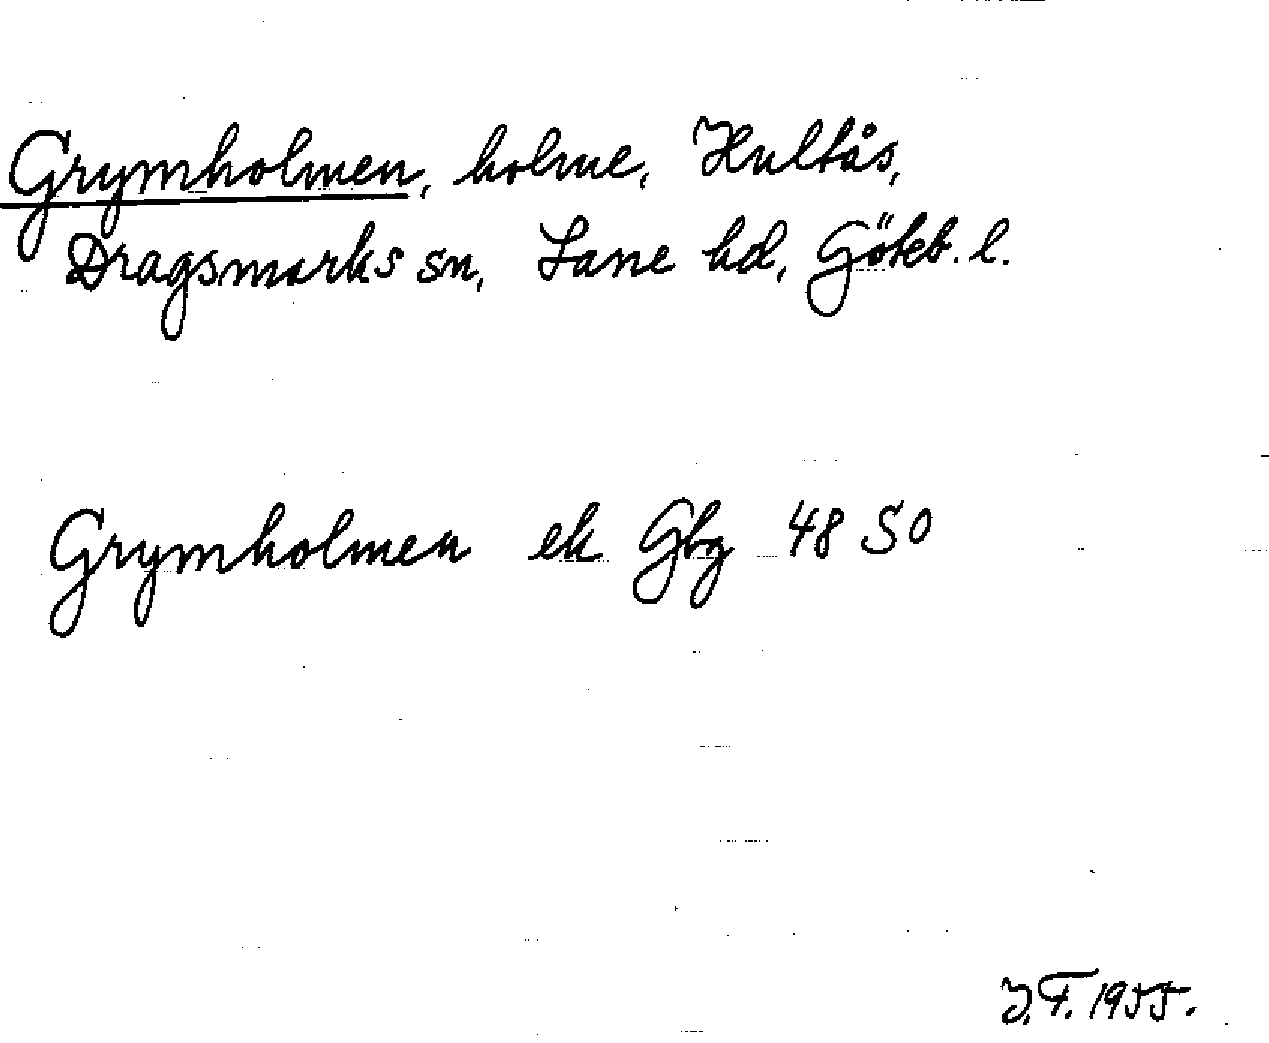 Grymholmen, holme, Hultås,
Dragsmarks sn, Lane hd, Göteb. l.
Grymholmen ek Gbg 48 SO
J.F. 1955.